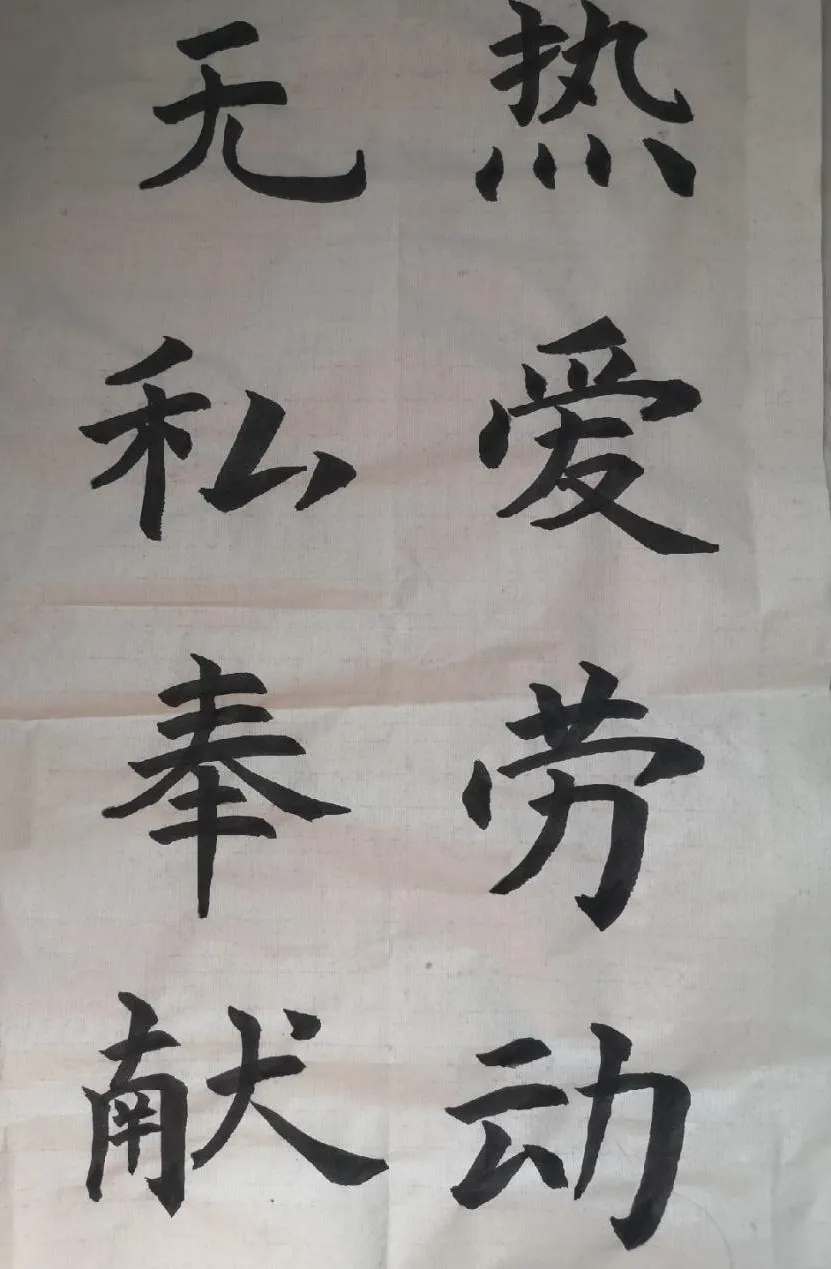 热爱劳动
无私奉献